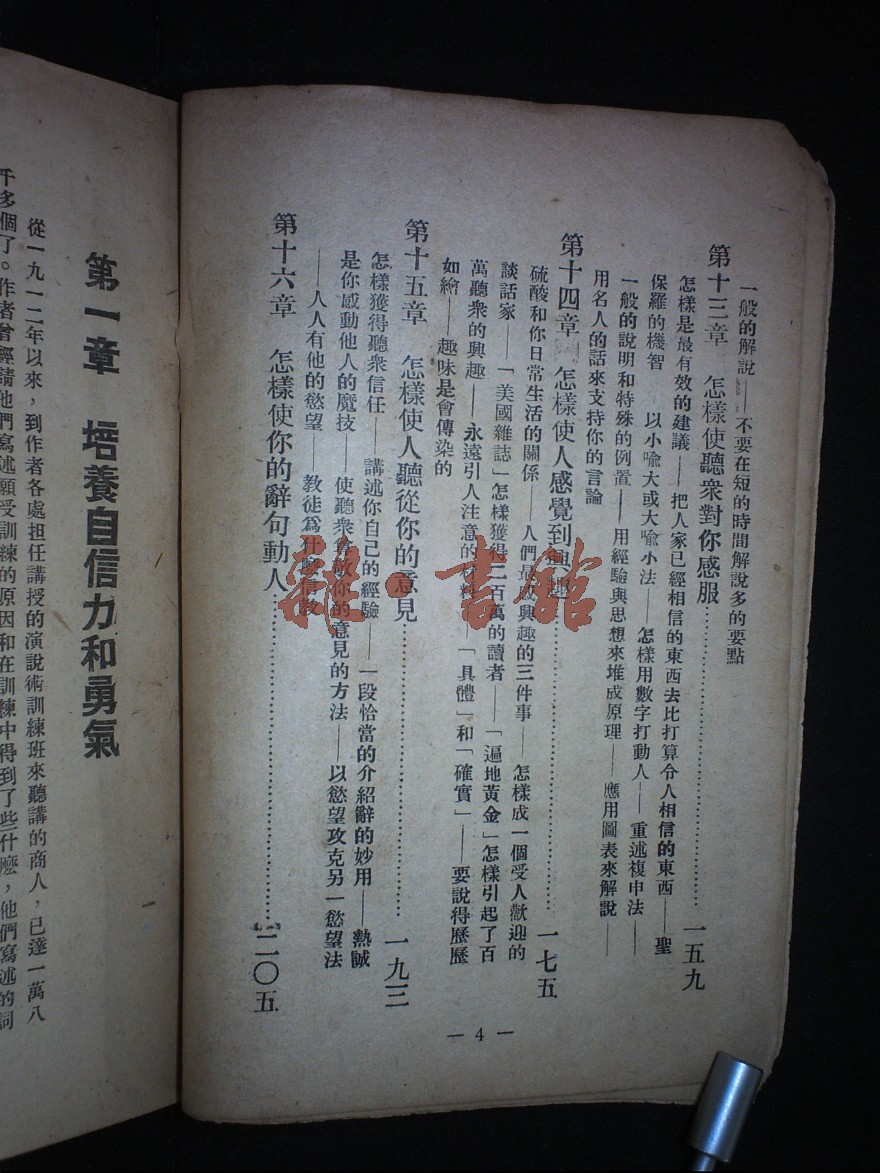 一般的解說——不要在短的時間解說多的要點
第十三章　怎樣使聽衆對你感服…………一五九
怎樣是最有效的建議——把人家已經相信的東西去比打算令人相信的東西——聖
保羅的機智　以小喻大或大喻小法——怎樣用數字打動人——重述複申法——
一般的說明和特殊的例置——用經驗與思想來堆成原理——應用圖表來解說——
用名人的話來支持你的言論
第十四章　怎樣使人感覺到興趣…………一七五
硫酸和你日常生活的關係——人們最感興趣的三件事——怎樣成一個受人歡迎的
談話家——「美國雜誌」怎樣獲得二百萬的讀者——「遍地黃金」怎樣引起了百
萬聽衆的興趣——永遠引人注意的材料——「具體」和「確實」——要說得歷歷
如繪——趣味是會傳染的
第十五章　怎樣使人聽從你的意見…………一九三
怎樣獲得聽衆信任——講述你自己的經驗——一段恰當的介紹辭的妙用——熱誠
是你感動他人的魔技——使聽衆尊敬你的意見的方法——以慾望攻克另一慾望法
——人人有他的慾望　　教徒爲什麼信教
第十六章　怎樣使你的辭句動人…………二〇五
— 4 —
第一章　培養自信力和勇氣
從一九一二年以來，到作者各處担任講授的演說術訓練班來聽講的商人，已達一萬八
千多個了。作者曾經請他們寫述願受訓練的原因和在訓練中得到了些什麼，他們寫述的詞
龍·書館